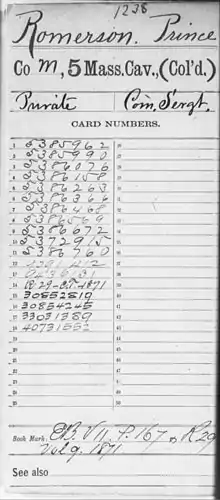 1238
Romerson, Prince
Co M, 5 Mass. Cav., (Col'd.)
Private Com. Sergt.
CARD NUMBERS.
1 5385962 26
2 5385990 27
3 5386076 28
4 5386158 29
5 5386263 30
6 5386366 31
7 5386468 32
8 5386569 33
9 5386672 34
10 5372915 35
11 5386760 36
12 37
13 38
14 R.29-C.T.-1871 39
15 30852819 40
16 30854245 41
17 33031389 42
18 40731552 43
19 44
20 45
21 46
22 47
23 48
24 49
25 50
Book Mark: EB. V11, P. 167, R29
Vol 9. 1871
See also